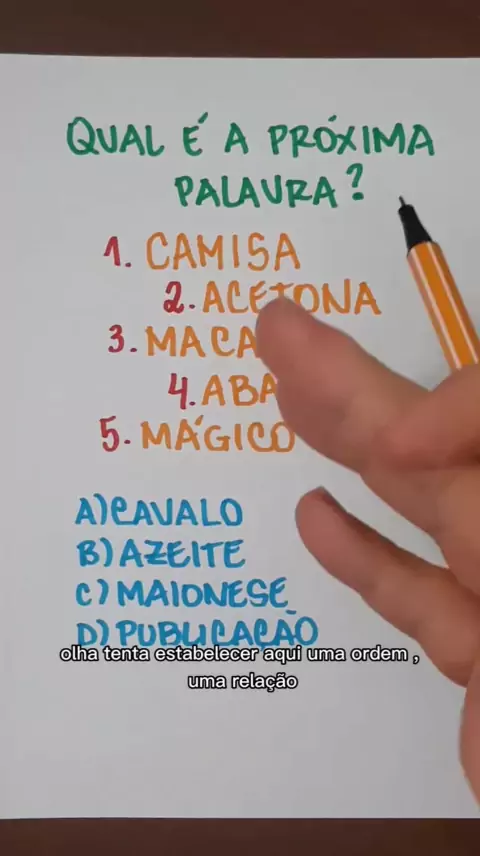 QUAL É A PRÓXIMA
PALAVRA?
1. CAMISA
2. ACETONA
3. MACA
4. ABA
5. MÁGICO
A) CAVALO
B) AZEITE
C) MAIONESE
D) PUBLICAÇÃO
olha tenta estabelecer aqui uma ordem ,
uma relação